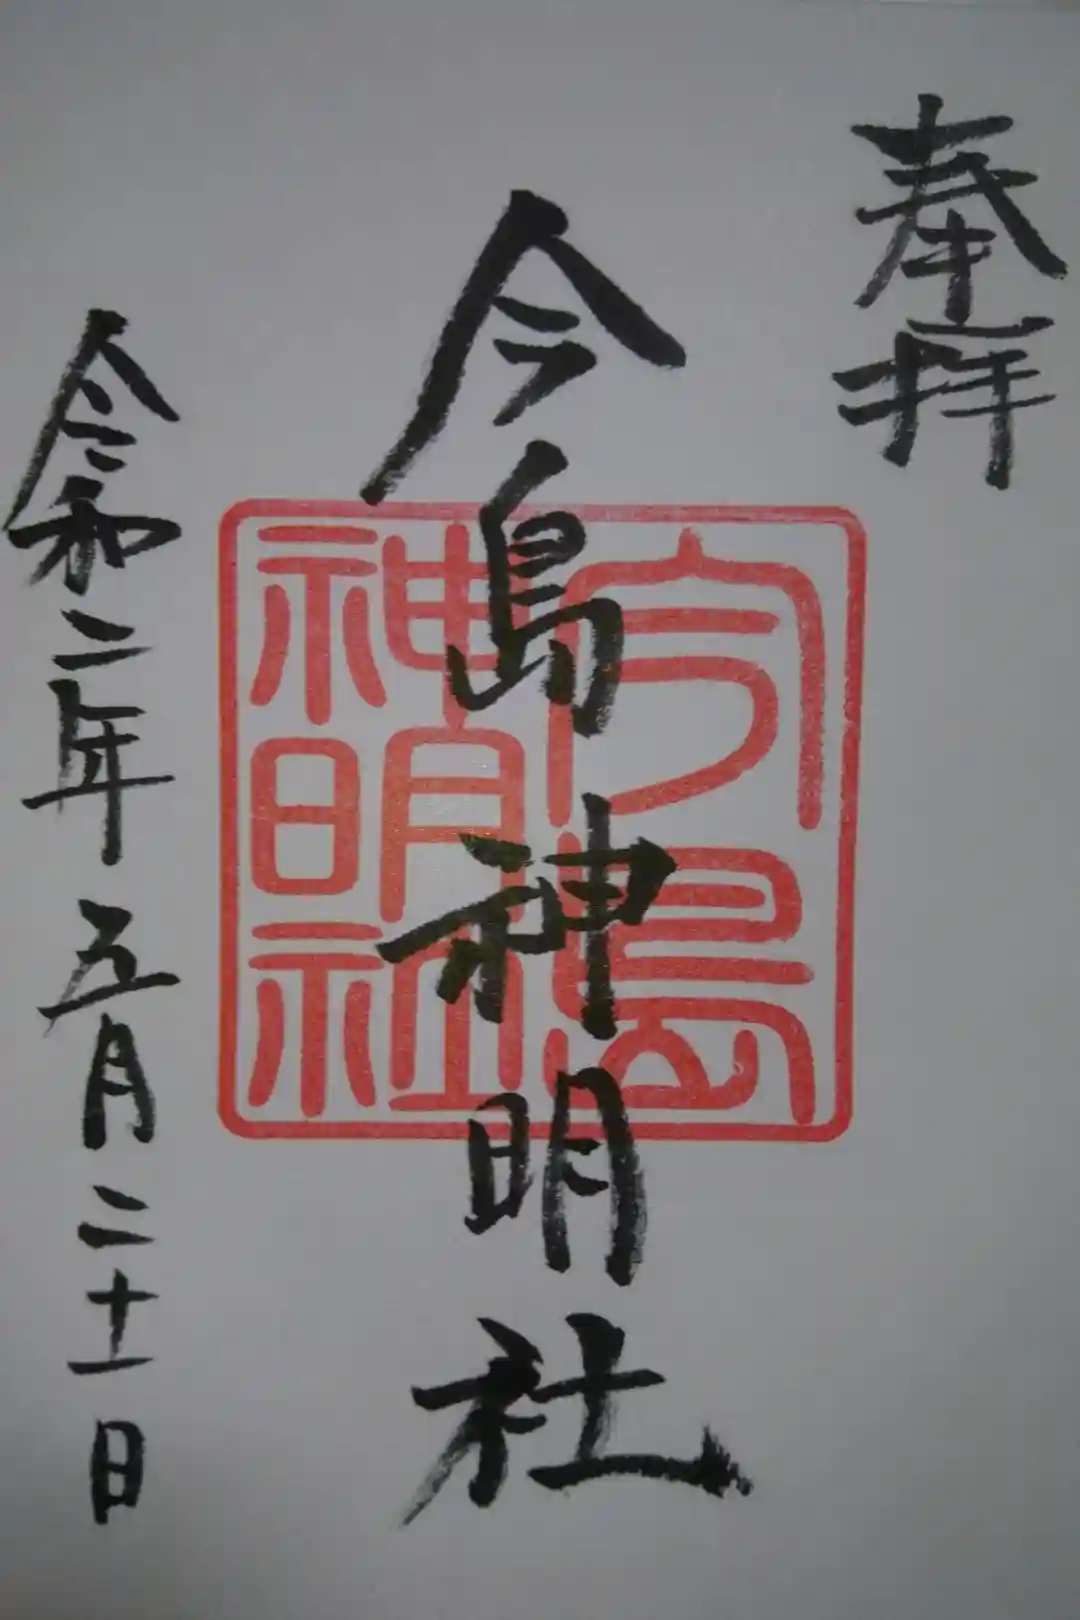 奉拝
今島神明社
今島
神明社
令和二年五月二十一日